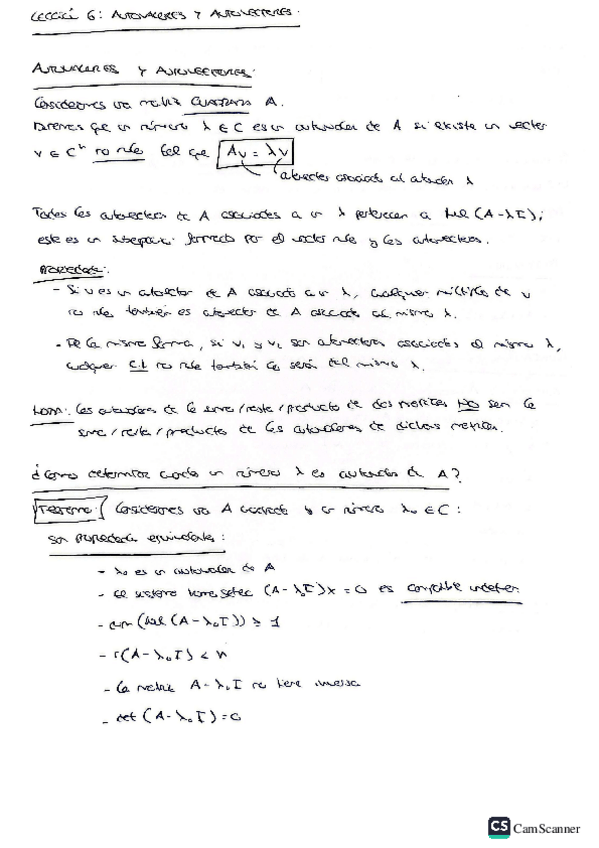 LECCIÓ 6: AUTOVALORES Y AUTOVECTORES.
AUTOVALORES Y AUTOVECTORES:
Consideremos una matriz CUADRADA A.
Diremos que un número λ ∈ C es un autovalor de A si existe un vector
v ∈ Cⁿ no nulo tal que Av = λv
autovector asociado al autovalor λ
Todos los autovectores de A asociados a un λ pertenecen a Nul(A-λI);
este es un subespacio formado por el vector nulo y los autovectores.
PROPIEDADES:
- Si v es un autovector de A asociado a un λ, cualquier múltiplo de v
no nulo también es autovector de A asociado al mismo λ.
- De la misma forma, si v₁ y v₂ son autovectores asociados al mismo λ,
cualquier C.L no nula también lo será del mismo λ.
Los autovalores de la suma/resta/producto de dos matrices NO son la
suma/resta/producto de los autovalores de dichas matrices.
¿Cómo determinar cuándo un número λ es autovalor de A?
Teorema: Consideremos una A cuadrada y un número λ₀ ∈ C:
son propiedades equivalentes:
- λ₀ es un autovalor de A
- el sistema (A-λ₀I)x = 0 es compatible indeter.
- dim(Nul(A-λ₀I)) ≥ 1
- r(A-λ₀I) < n
- la matriz A-λ₀I no tiene inversa
- det(A-λ₀I)=0
CS CamScanner